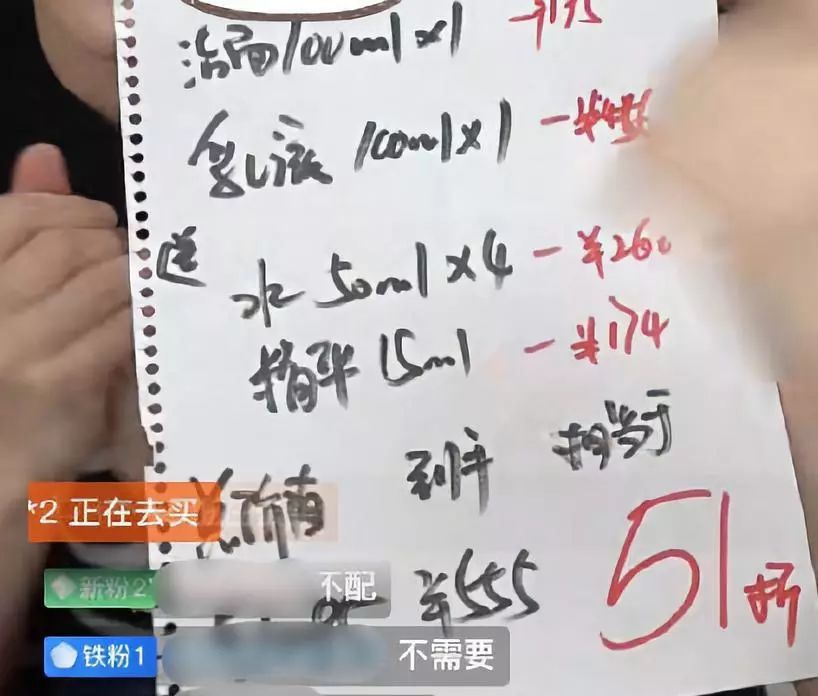 洁面100ml×1 -¥175
乳液100ml×1 -¥
送
水50ml×4 -¥260
精华15ml -¥174
所有 到手 相当于
¥555 51折
*2 正在去买
新粉2 不配
铁粉1 不需要